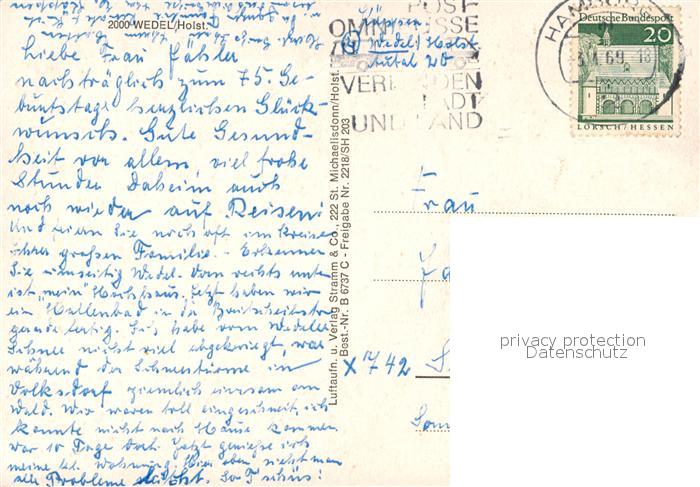 2000 WEDEL/Holst.
Liebe Frau Fahler
nachträglich zum 75. Ge-
burtstage herzlichen Glück-
wunsch. Gute Gesund-
heit vor allem, viel frohe
Stunden Daheim auch
noch wieder auf Reisen
und feiern Sie noch oft im Kreise
Ihrer großen Familie. - Erkennen
Sie umseitig Wedel. Vorn rechts unten
ist "mein" Hochhaus. Jetzt haben wir
ein Hallenbad in der
gerade fertig. Ich habe vom Wedeler
Schnee nicht viel abgekriegt, war
während der Schneestürme in
Volksdorf ziemlich einsam am
Wald. Wir waren toll eingeschneit, ich
konnte nicht nach Hause kommen
war 10 Tage dort. Jetzt genieße ich
meine kl. Wohnung. Hier oben sieht man
alle Probleme leicht. So Tschüs!
Luftaufn. u. Verlag Stramm & Co., 222 St. Michaelisdonn/Holst.
Best.-Nr. B 6737 C - Freigabe Nr. 2218/SH 203
POST
OMNIBUSSE
VERBINDEN
STADT
UND LAND
Wedel/Holst
HAMBURG
69. 18
Deutsche Bundespost
20
LORSCH/HESSEN
Frau
X 1742
privacy protection
Datenschutz